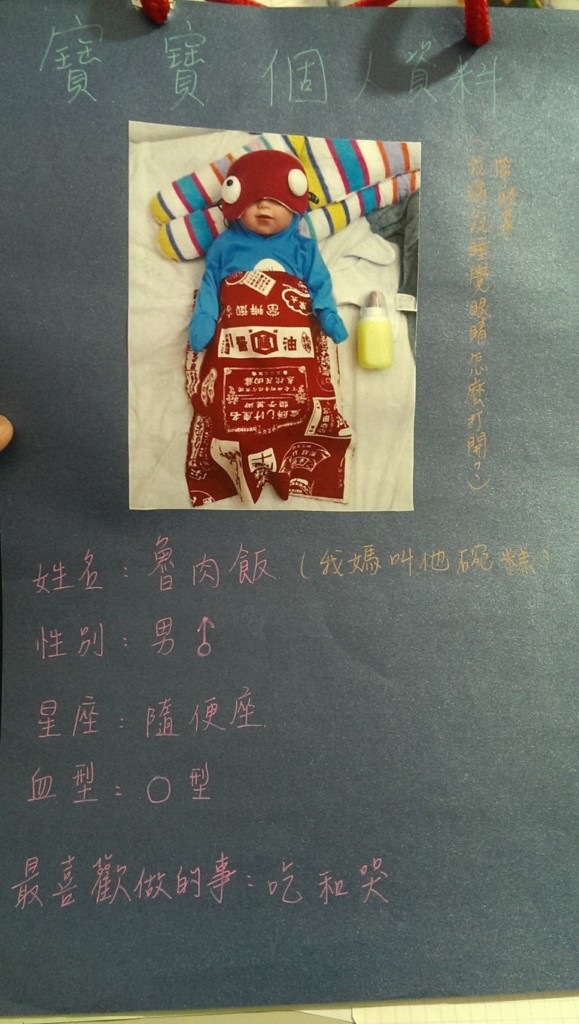 寶寶個人資料
我媽說睡覺眼睛怎麼打開?)
姓名:魯肉飯(我媽叫他碗糕)
性別:男♂
星座:隨便座
血型:O型
最喜歡做的事:吃和哭